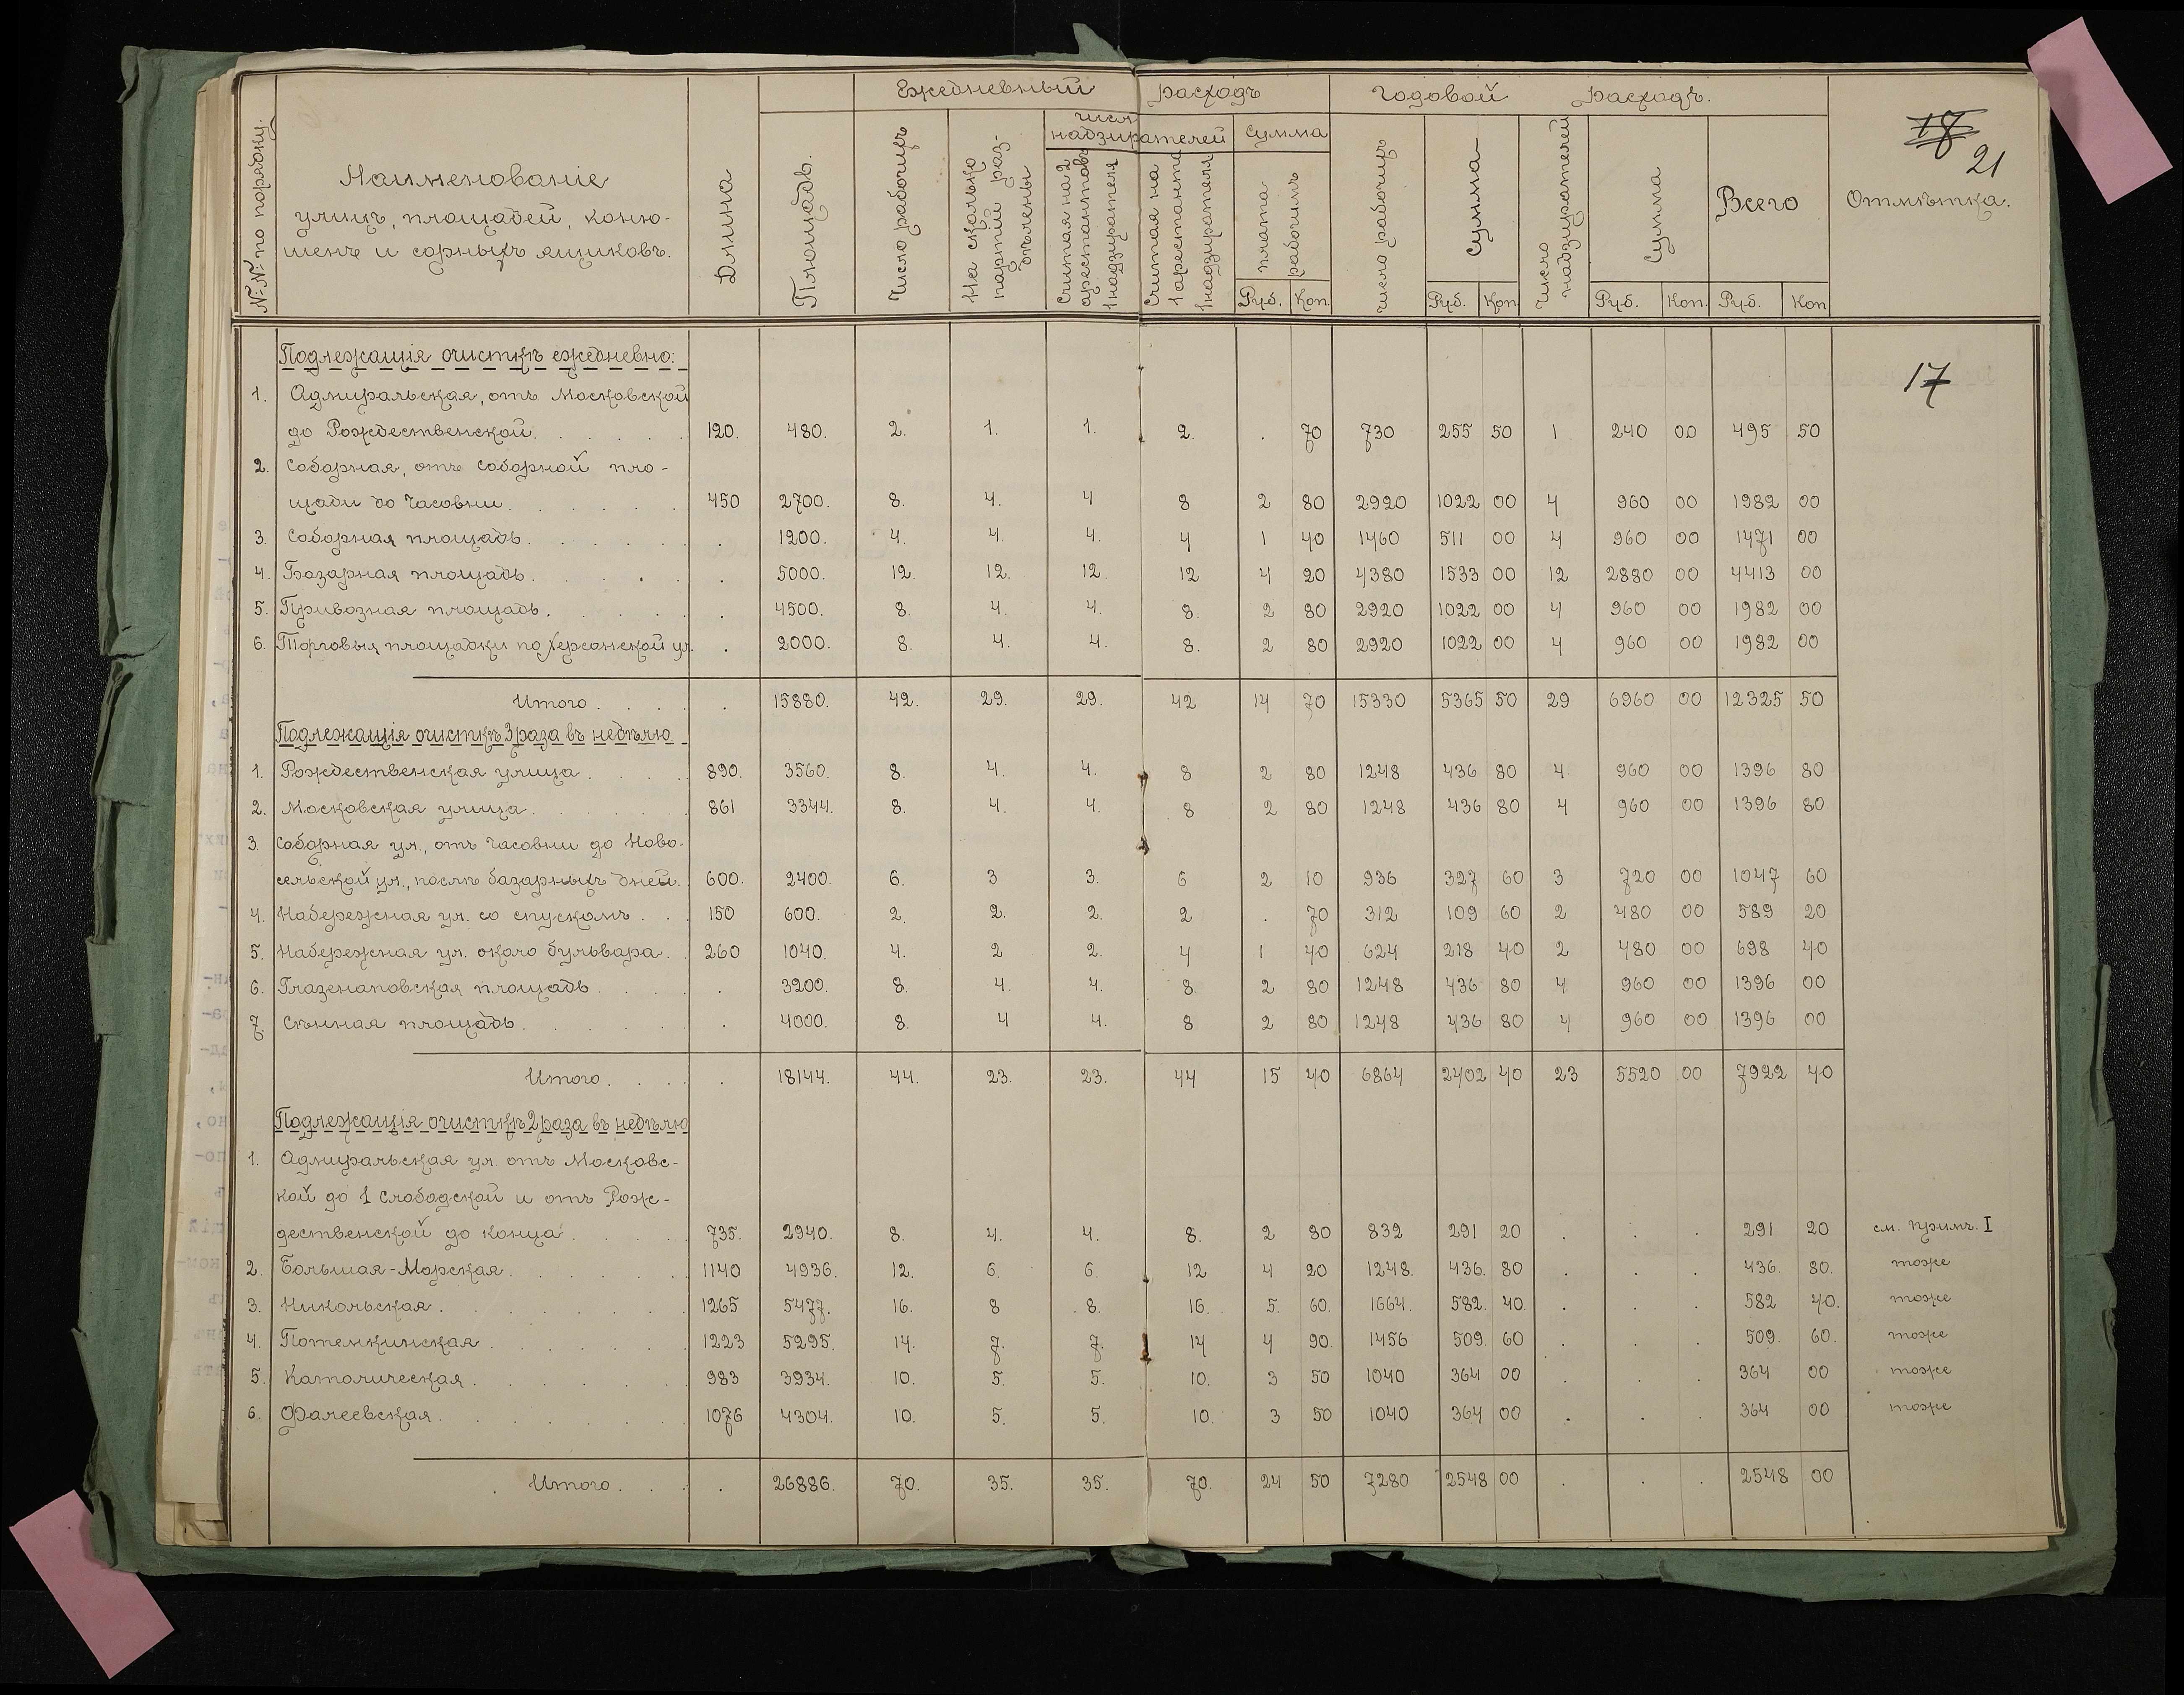 Ежедневный расходъ Годовой расходъ.
18
21
№№ по порядку.
Наименованіе
улицъ, площадей, коню-
шенъ и сорныхъ ящиковъ.
Длина
Площадь.
Число рабочихъ
На сколько
партій раз-
дѣлены
числ
надзирателей
Считая на 2
арестантовъ
1 надзирателя
Считая на
1 арестанта
1 надзирателя
Сумма
плата
рабочимъ
Руб. Коп.
Число рабочихъ
Сумма
Руб. Коп
Число
надзирателей
Сумма
Руб. Коп.
Всего
Руб. Коп
Отмѣтка.
17
Подлежащія очисткѣ ежедневно:
1. Адмиральская, отъ Московской
до Рождественской. 120. 480. 2. 1. 1. 2. . 70 730 255 50 1 240 00 495 50
2. Соборная, отъ Соборной пло-
щади до Часовни. 450 2700. 8. 4. 4 8 2 80 2920 1022 00 4 960 00 1982 00
3. Соборная площадь. . 1200. 4. 4. 4. 4 1 40 1460 511 00 4 960 00 1471 00
4. Базарная площадь. . 5000. 12. 12. 12. 12 4 20 4380 1533 00 12 2880 00 4413 00
5. Привозная площадь. . 4500. 8. 4. 4. 8. 2 80 2920 1022 00 4 960 00 1982 00
6. Торговыя площадки по Херсонской ул. . 2000. 8. 4. 4. 8. 2 80 2920 1022 00 4 960 00 1982 00
Итого . . 15880. 42. 29. 29. 42 14 70 15330 5365 50 29 6960 00 12325 50
Подлежащія очисткѣ 3 раза въ недѣлю
1. Рождественская улица . 890. 3560. 8. 4. 4. 8 2 80 1248 436 80 4. 960 00 1396 80
2. Московская улица . 861 3344. 8. 4. 4. 8 2 80 1248 436 80 4 960 00 1396 80
3. Соборная ул., отъ Часовни до Ново-
сельской ул., послѣ базарныхъ дней. 600. 2400. 6. 3 3. 6 2 10 936 327 60 3 720 00 1047 60
4. Набережная ул. со спускомъ . 150 600. 2. 2. 2. 2 . 70 312 109 60 2 480 00 589 20
5. Набережная ул. около бульвара. 260 1040. 4. 2 2. 4 1 40 624 218 40 2 480 00 698 40
6. Глазенаповская площадь . . 3200. 8. 4. 4. 8 2 80 1248 436 80 4 960 00 1396 00
7. Сѣнная площадь. . 4000. 8. 4 4. 8 2 80 1248 436 80 4 960 00 1396 00
Итого. . 18144. 44. 23. 23. 44 15 40 6864 2402 40 23 5520 00 7922 40
Подлежащія очисткѣ 2 раза въ недѣлю
1. Адмиральская ул. отъ Московс-
кой до 1 Слободской и отъ Рож-
дественской до конца . 735. 2940. 8. 4. 4. 8. 2 80 832 291 20 . . . 291 20 см. примѣч. I
2. Большая-Морская. 1140 4936. 12. 6. 6. 12 4 20 1248. 436. 80 . . . 436. 80. тоже
3. Никольская. 1265 5477. 16. 8 8. 16. 5. 60. 1664. 582. 40. . . . 582 40. тоже
4. Потемкинская . 1223 5295. 14. 7. 7. 14 4 90. 1456 509. 60 . . . 509. 60. тоже
5. Католическая . 983 3934. 10. 5. 5. 10. 3 50 1040 364 00 . . . 364 00 тоже
6. Фалеевская. 1076 4304. 10. 5. 5. 10. 3 50 1040 364 00 . . . 364 00 тоже
Итого . . 26886. 70. 35. 35. 70. 24 50 7280 2548 00 . . . 2548 00